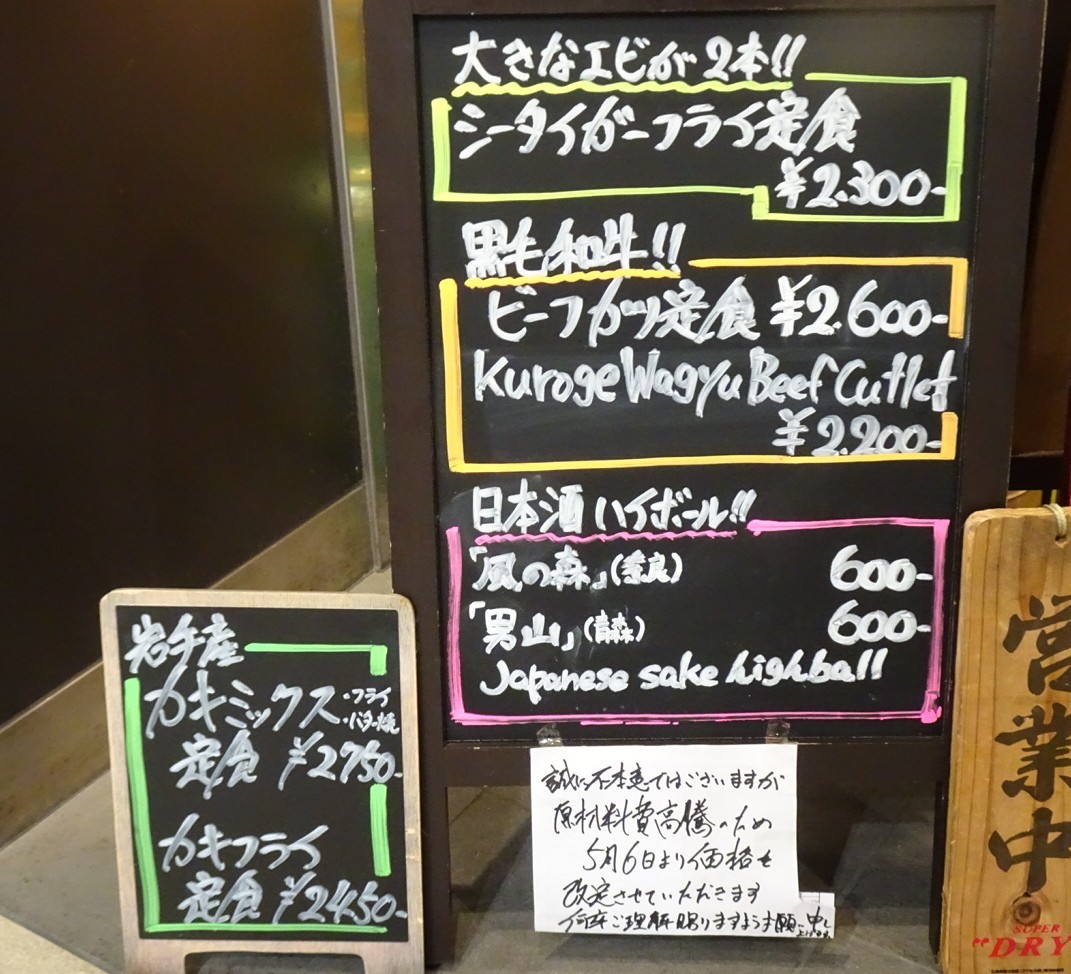 大きなエビが2本!!
シータイガーフライ定食
¥2.300-
黒毛和牛!!
ビーフカツ定食 ¥2.600-
Kuroge Wagyu Beef Cutlet
¥2.200-
日本酒ハイボール!!
「風の森」(奈良) 600-
「男山」(青森) 600-
Japanese sake highball
岩手産
カキミックス ・フライ
・バター焼
定食 ¥2750-
カキフライ
定食 ¥2450-
誠に不本意ではございますが
原材料費高騰のため
5月6日より価格を
改定させていただきます
何卒ご理解賜りますようお願い申し
上げます。
営業中
SUPER
"DRY